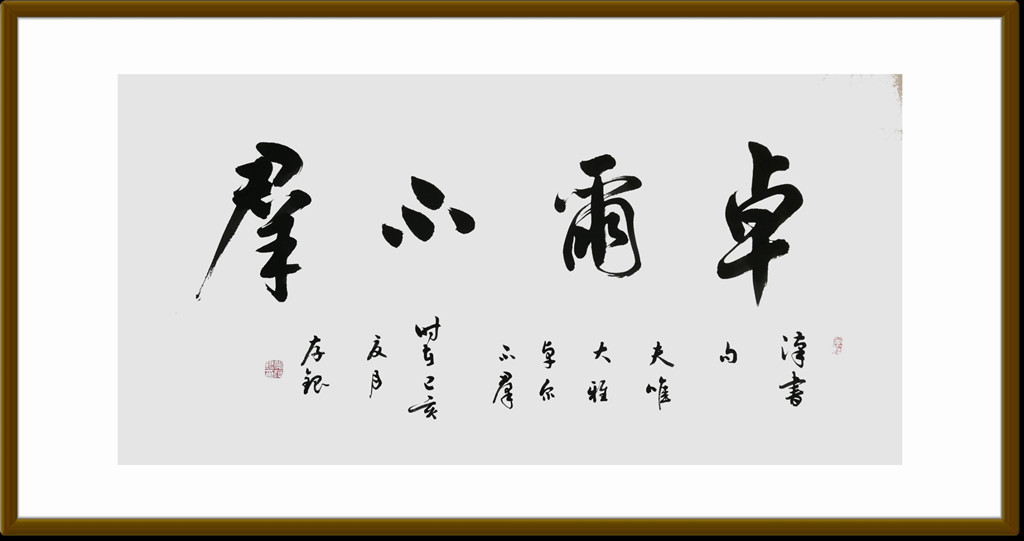 卓爾不群
漢書
句
夫唯
大雅
卓尔
不群
时在己亥
夏月
存銀